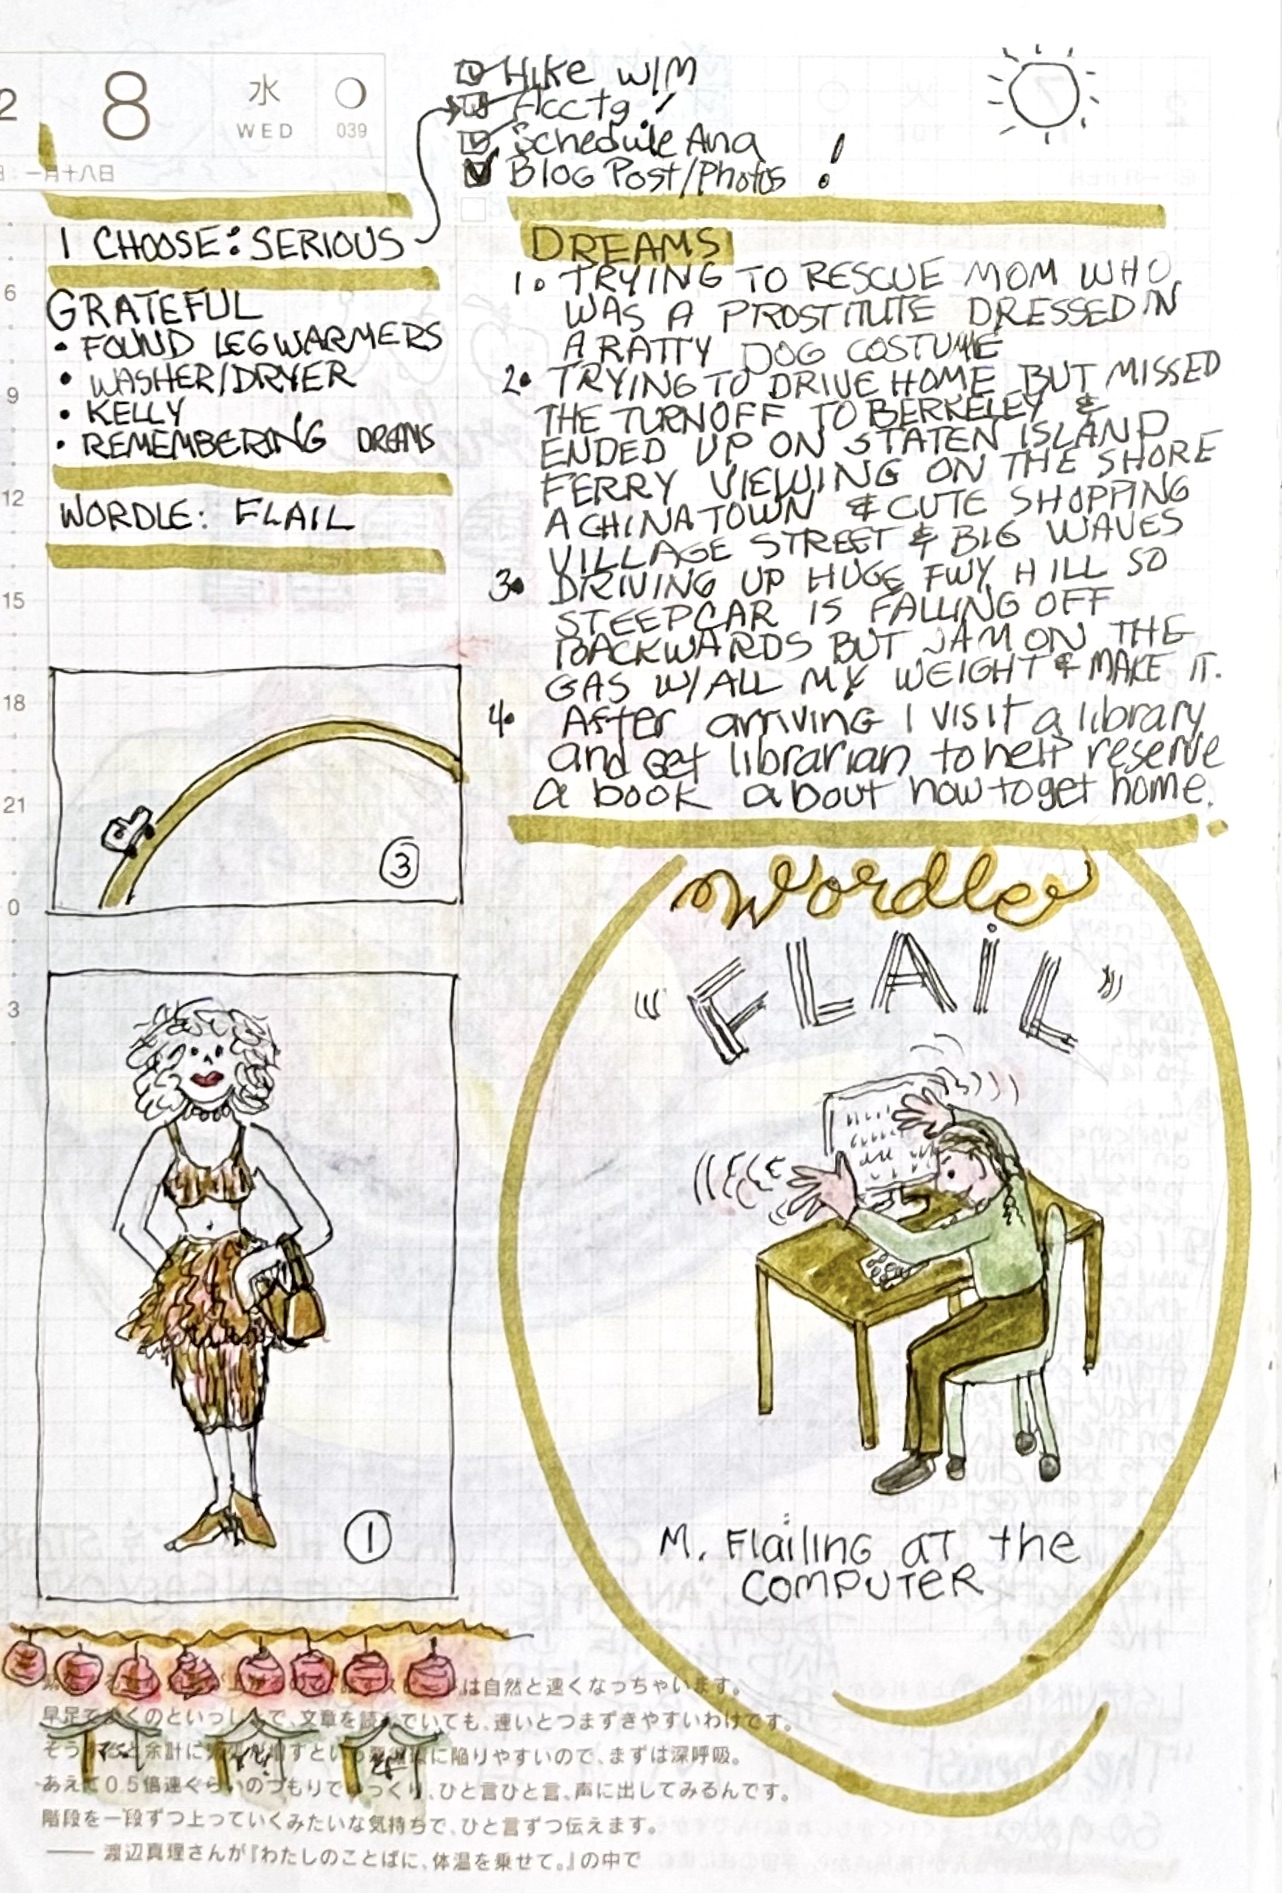 2
8
水
WED
039
一月十八日
Hike w/M
Acctg !
Schedule Ana
Blog Post/Photos !
I CHOOSE: SERIOUS
GRATEFUL
• FOUND LEGWARMERS
• WASHER/DRYER
• KELLY
• REMEMBERING DREAMS
WORDLE: FLAIL
6
9
12
15
18
21
0
3
DREAMS
1. TRYING TO RESCUE MOM WHO
WAS A PROSTITUTE DRESSED IN
A RATTY DOG COSTUME
2. TRYING TO DRIVE HOME BUT MISSED
THE TURNOFF TO BERKELEY &
ENDED UP ON STATEN ISLAND
FERRY VIEWING ON THE SHORE
A CHINATOWN & CUTE SHOPPING
VILLAGE STREET & BIG WAVES
3. DRIVING UP HUGE FWY HILL SO
STEEP CAR IS FALLING OFF
BACKWARDS BUT JAM ON THE
GAS W/ALL MY WEIGHT & MAKE IT.
4. After arriving I visit a library
and get librarian to help reserve
a book about how to get home.
3
1
Wordle
"FLAIL"
M. Flailing at the
COMPUTER
は自然と速くなっちゃいます。
早足で歩くのといっしょで、文章を読んでいても、速いとつまずきやすいわけです。
に陥りやすいので、まずは深呼吸。
あえて0.5倍速ぐらいのつもりでゆっくり、ひと言ひと言、声に出してみるんです。
階段を一段ずつ上っていくみたいな気持ちで、ひと言ずつ伝えます。
—— 渡辺真理さんが『わたしのことばに、体温を乗せて。』の中で